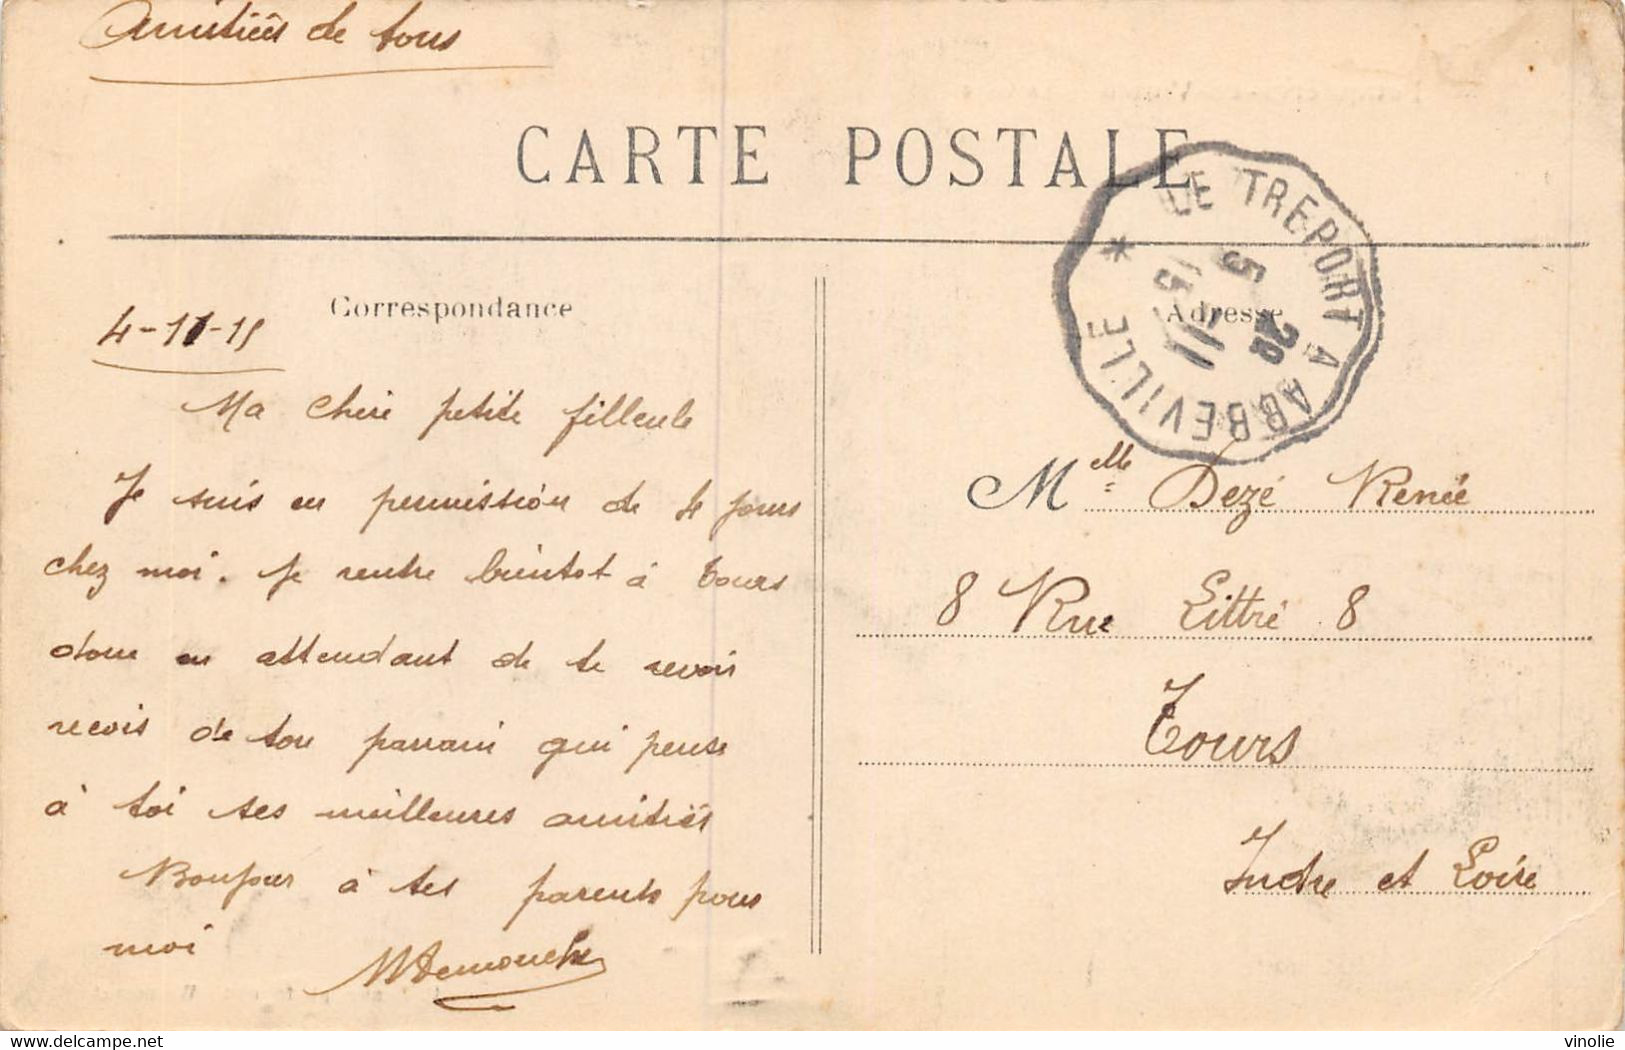 Amitiés de tous
CARTE POSTALE
LE TREPORT A ABBEVILLE *
5
11
15
Correspondance
Adresse
4-11-15
Ma chère petite filleule
Je suis en permission de 4 jours
chez moi. Je rentre bientot à Tours
donc en attendant de te revoir
recois de ton parrain qui pense
à toi ses meilleures amitiés
Bonjour à tes parents pour
moi
Mlle Dezé Renée
8 Rue Littré 8
Tours
Indre et Loire
delcampe.net
vinolie